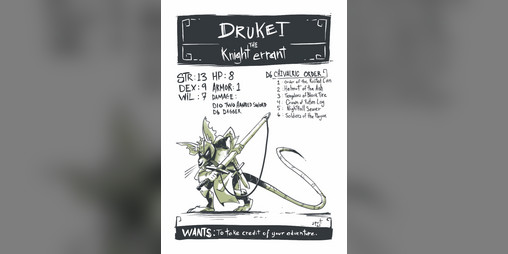 DRUKET
THE
Knight errant
STR: 13 HP: 8
DEX: 9 ARMOR: 1
WIL: 7 DAMAGE:
D10 TWO HANDED SWORD
D6 DAGGER
D6 CHIVALRIC ORDER?
1 Order of the
2 Helmet of the Ash
3 Templars of Black Tea
4 Crown of Log
5 Nightfall Sewer
6 Soldiers of the Plague
WANTS: To take credit of your adventure.